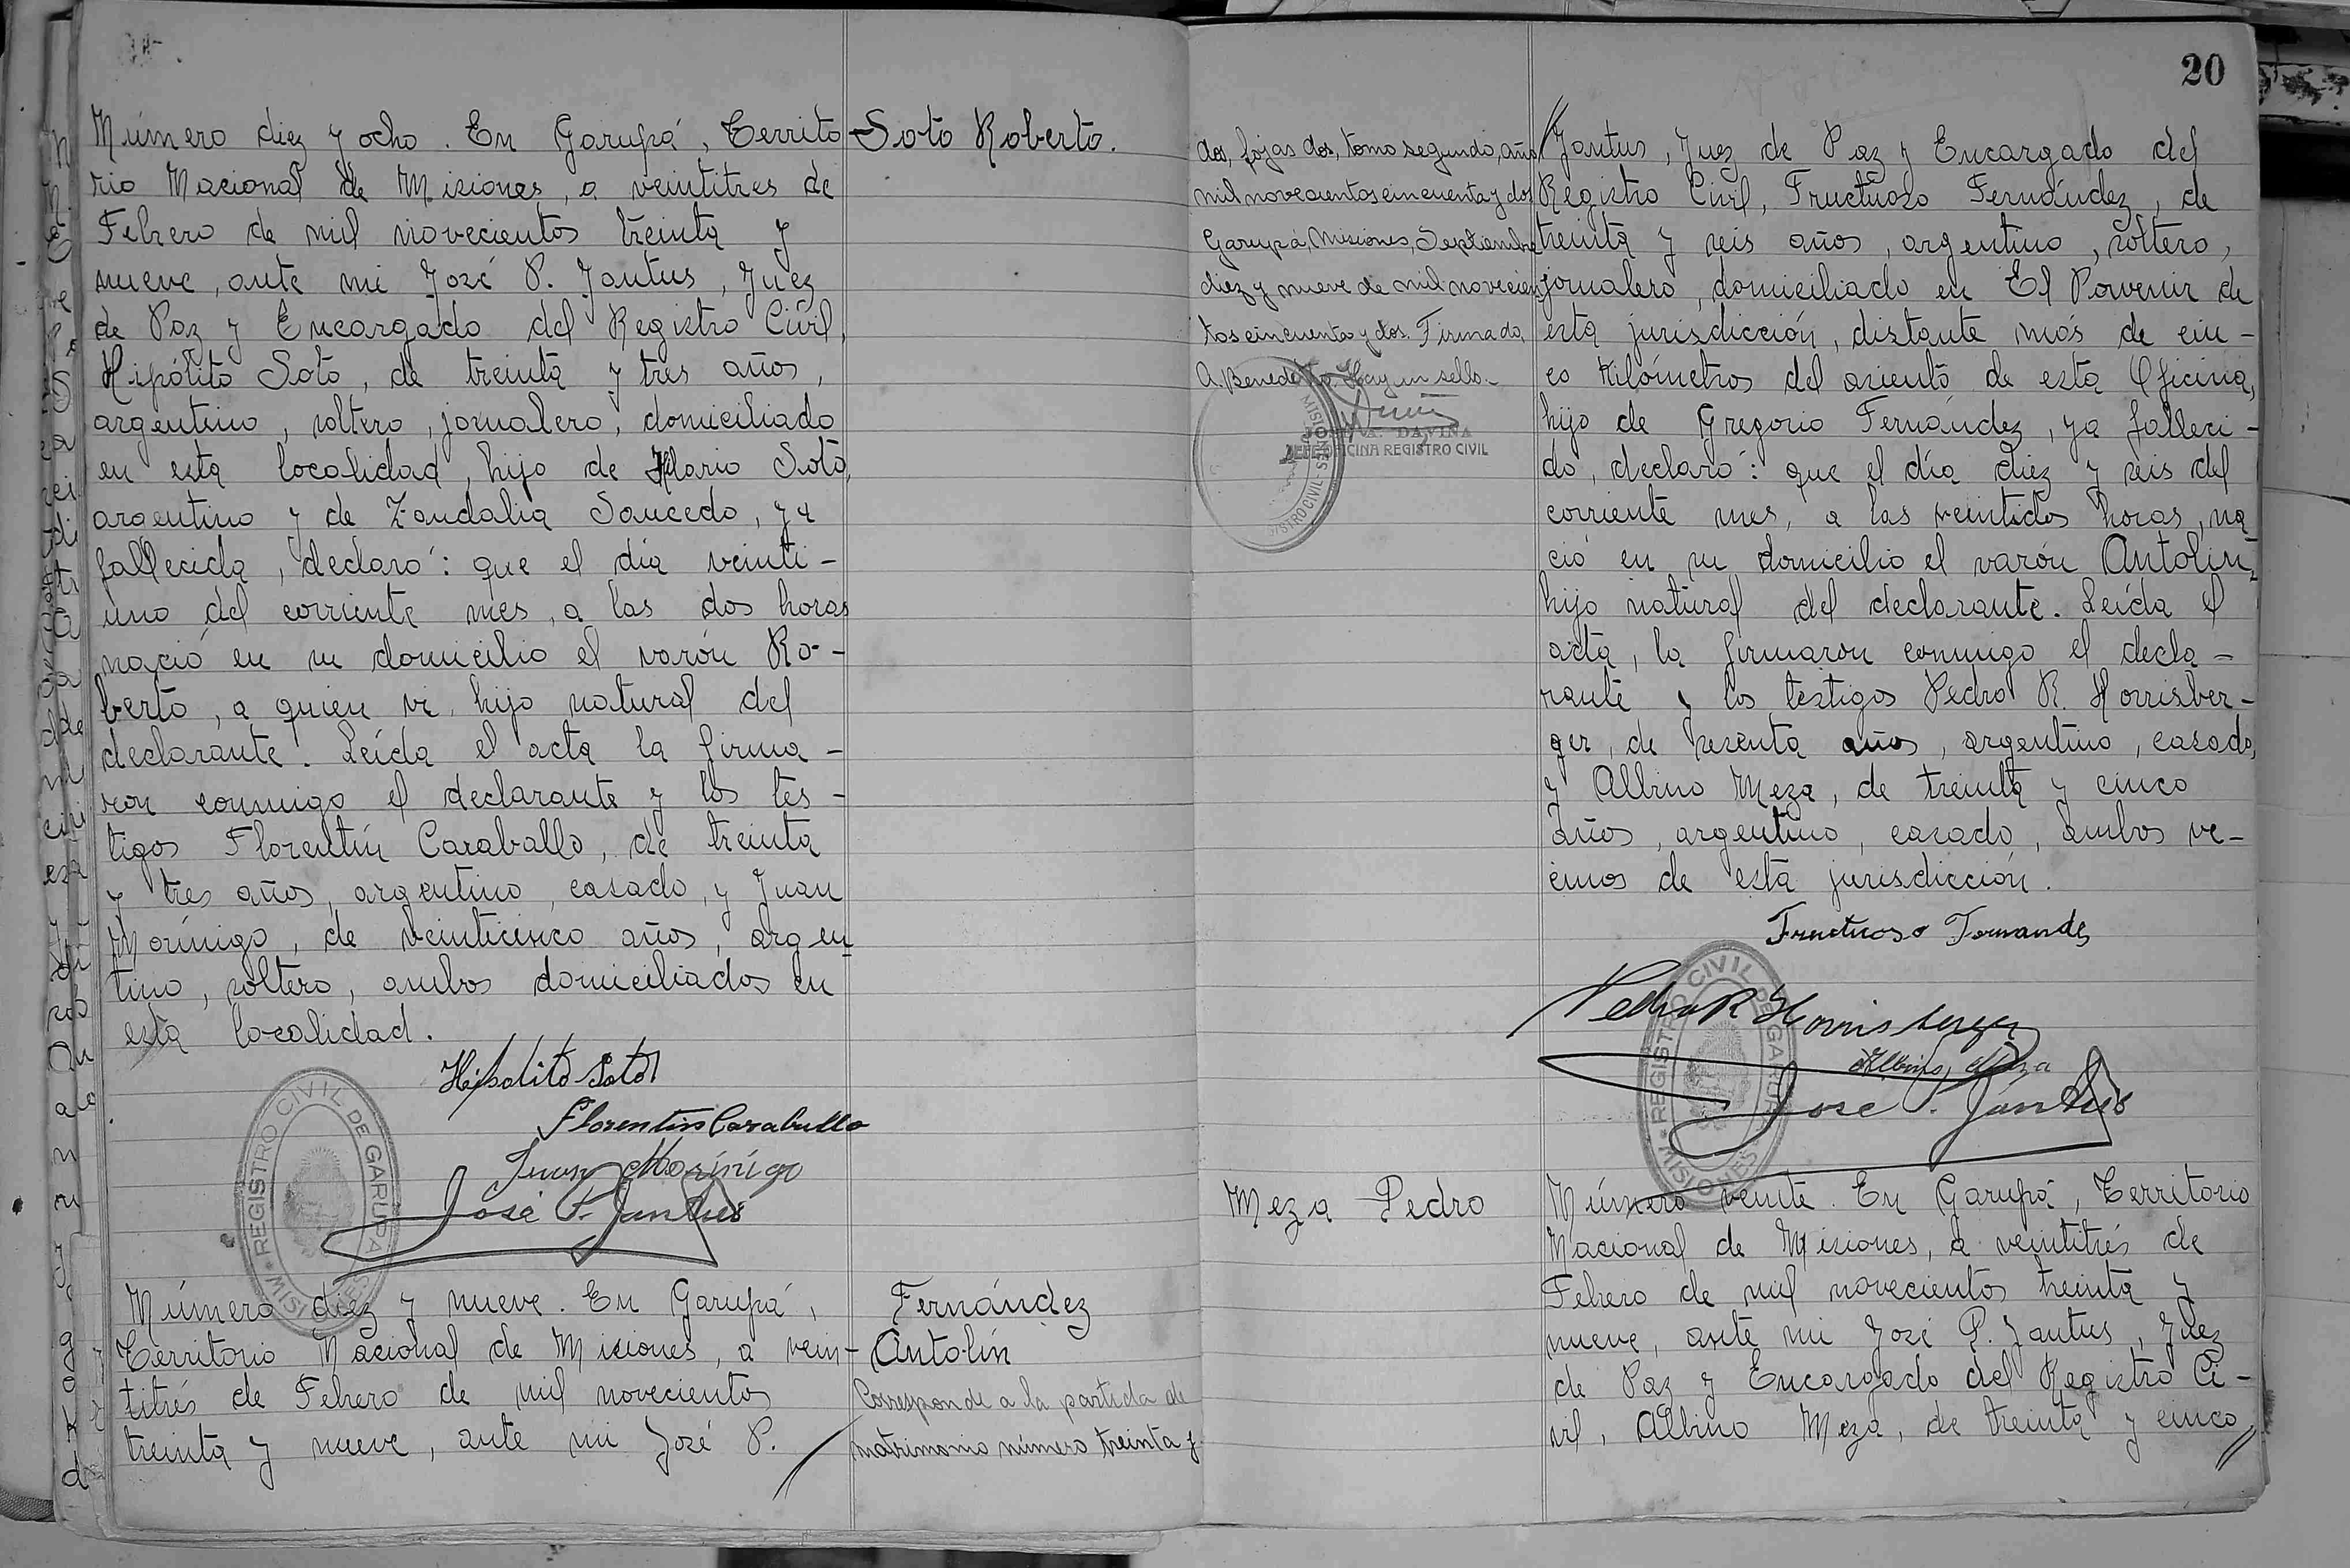 Número diez y ocho. En Garupá, Territo
rio Nacional de Misiones, a veintitres de
Febrero de mil novecientos treinta y
nueve, ante mi José P. Jantus, Juez
de Paz y Encargado del Registro Civil,
Hipólito Soto, de treinta y tres años,
argentino, soltero, jornalero, domiciliado
en esta localidad, hijo de Hilario Soto,
argentino y de Zandalia Saucedo, ya
fallecida, declaró: que el día veinti-
uno del corriente mes, a las dos horas
nació en su domicilio el varón Ro-
berto, a quien vi, hijo natural del
declarante. Leída el acta la firma-
ron conmigo el declarante y los tes-
tigos Florentín Caraballo, de treinta
y tres años, argentino, casado, y Juan
Morínigo, de veinticinco años, argen
tino, soltero, ambos domiciliados en
esta localidad.
Hipolito Soto
Florentin Caraballo
Juan Morínigo
José P. Jantus
REGISTRO CIVIL DE GARUPA
MISIONES
Soto Roberto.
Número diez y nueve. En Garupá,
Territorio Nacional de Misiones, a vein-
titrés de Febrero de mil novecientos
treinta y nueve, ante mi José P.
Fernández
Antolín
Corresponde a la partida de
matrimonio número treinta y
20
dos, fojas dos, tomo segundo, año
mil novecientos cincuenta y dos
Garupá, Misiones, Septiembre
diez y nueve de mil novecien
tos cincuenta y dos. Firmado,
A. Benedetto. Hay un sello.-
DAVIÑA
JEFE OFICINA REGISTRO CIVIL
Jantus, Juez de Paz y Encargado del
Registro Civil, Fructuoso Fernández, de
treinta y seis años, argentino, soltero,
jornalero, domiciliado en El Porvenir de
esta jurisdicción, distante más de cin-
co kilómetros del asiento de esta Oficina,
hijo de Gregorio Fernández, ya falleci-
do, declaró: que el día diez y seis del
corriente mes, a las veintidos horas, na
ció en su domicilio el varón Antolín,
hijo natural del declarante. Leída el
acta, la firmaron conmigo el decla-
rante y los testigos Pedro R. Horrisber-
ger, de sesenta años, argentino, casado,
y Albino Meza, de treinta y cinco
años, argentino, casado, ambos ve-
cinos de esta jurisdicción.
Fructuoso Fernandes
Pedro R Horrisberger
Albino Meza
José P. Jantus
REGISTRO CIVIL DE GARUPA
MISIONES
Meza Pedro
Número veinte. En Garupá, Territorio
Nacional de Misiones, a veintitrés de
Febrero de mil novecientos treinta y
nueve, ante mi José P. Jantus, Juez
de Paz y Encargado del Registro Ci-
vil, Albino Meza, de treinta y cinco